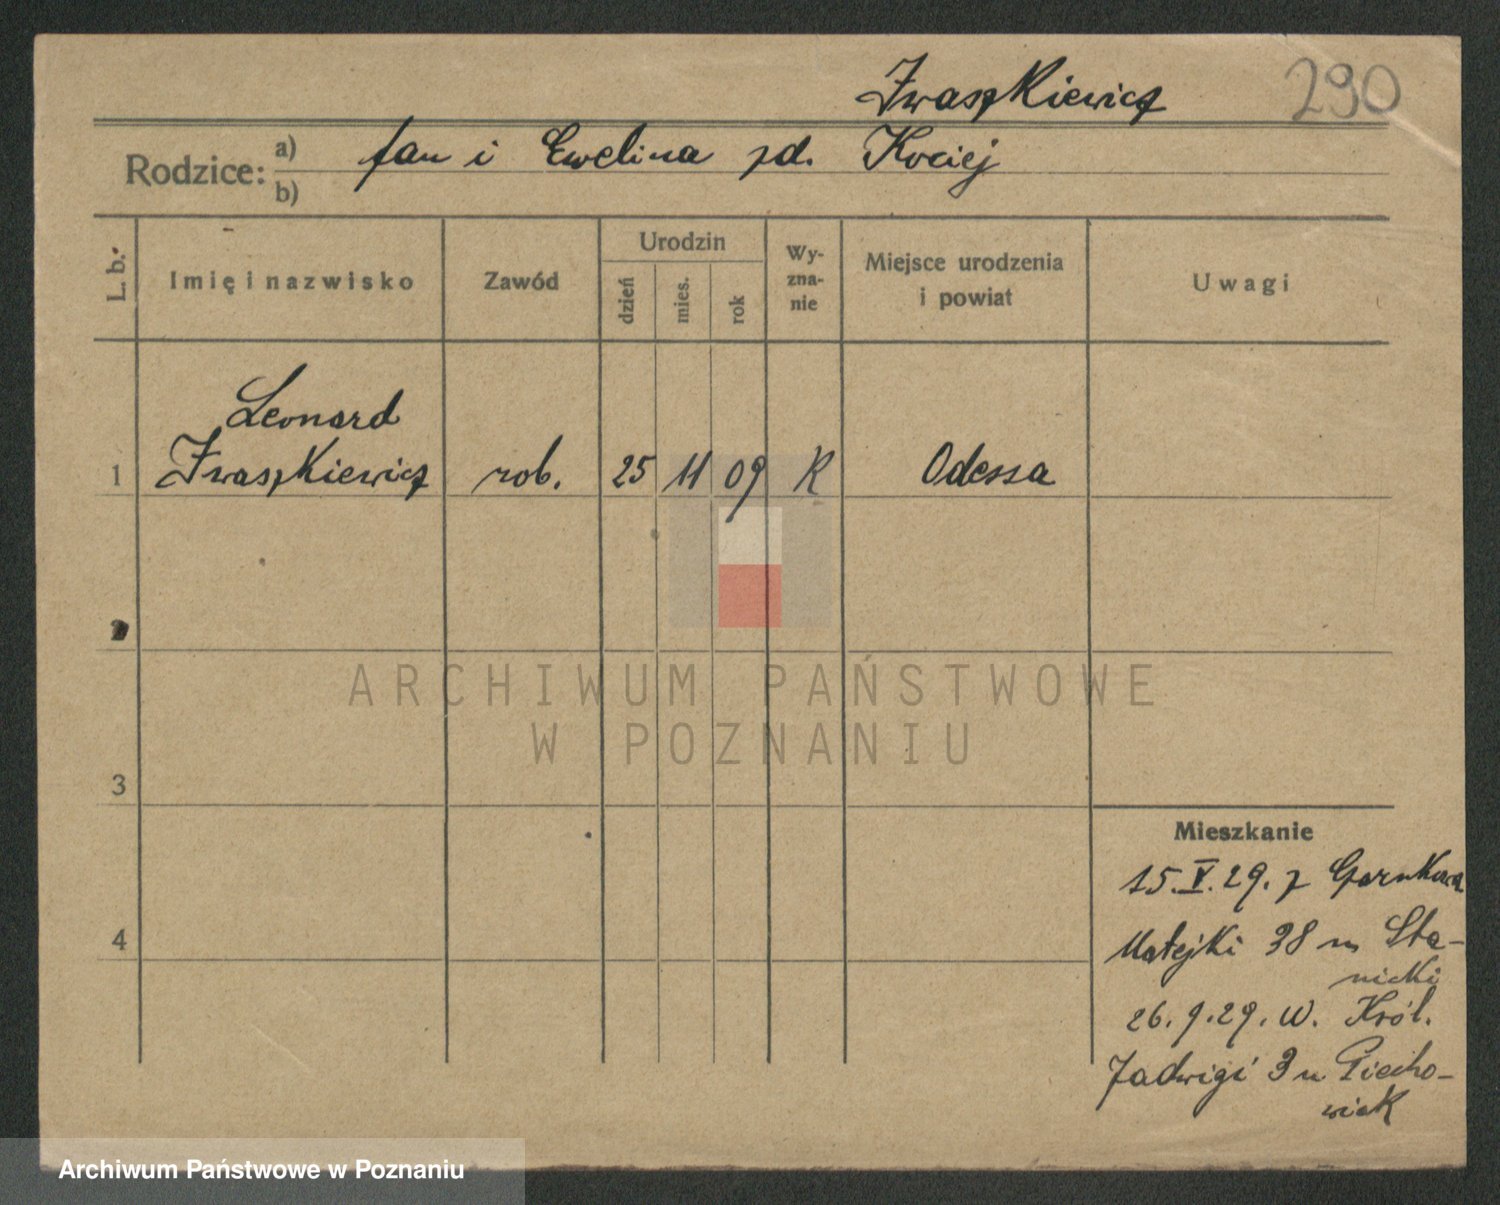 Iwaszkiewicz 290
Rodzice: a) Jan i Ewelina zd. Kociej
b)
L. b. Imię i nazwisko Zawód Urodzin Wy-
zna-
nie Miejsce urodzenia
i powiat Uwagi
dzień mies. rok
Leonard
1 Iwaszkiewicz rob. 25 11 09 R Odessa
2
3
Mieszkanie
15.V.29. z
4 Matejki 38 m Sta-
nicki
26.9.29. W. Król.
Jadwigi 3 u Piecho-
wiak
ARCHIWUM PAŃSTWOWE
W POZNANIU
Archiwum Państwowe w Poznaniu